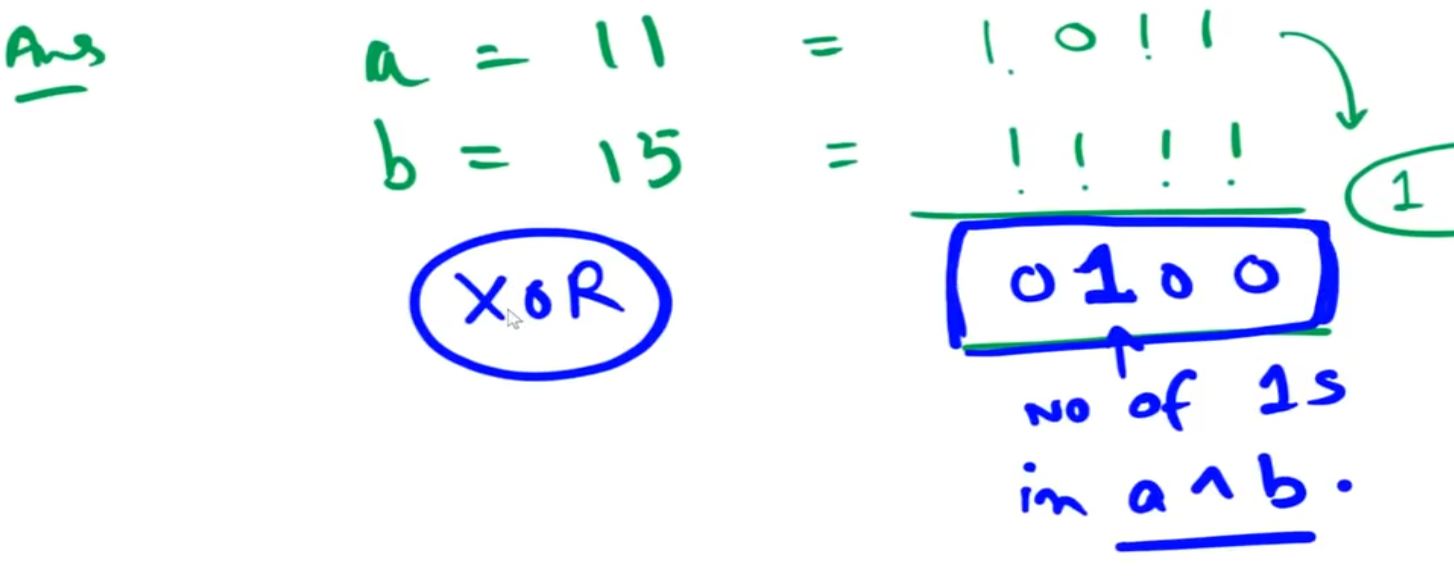 Ans a = 11 = 1 0 1 1
b = 15 = 1 1 1 1
1
XOR 0 1 0 0
No of 1s
in a ^ b.